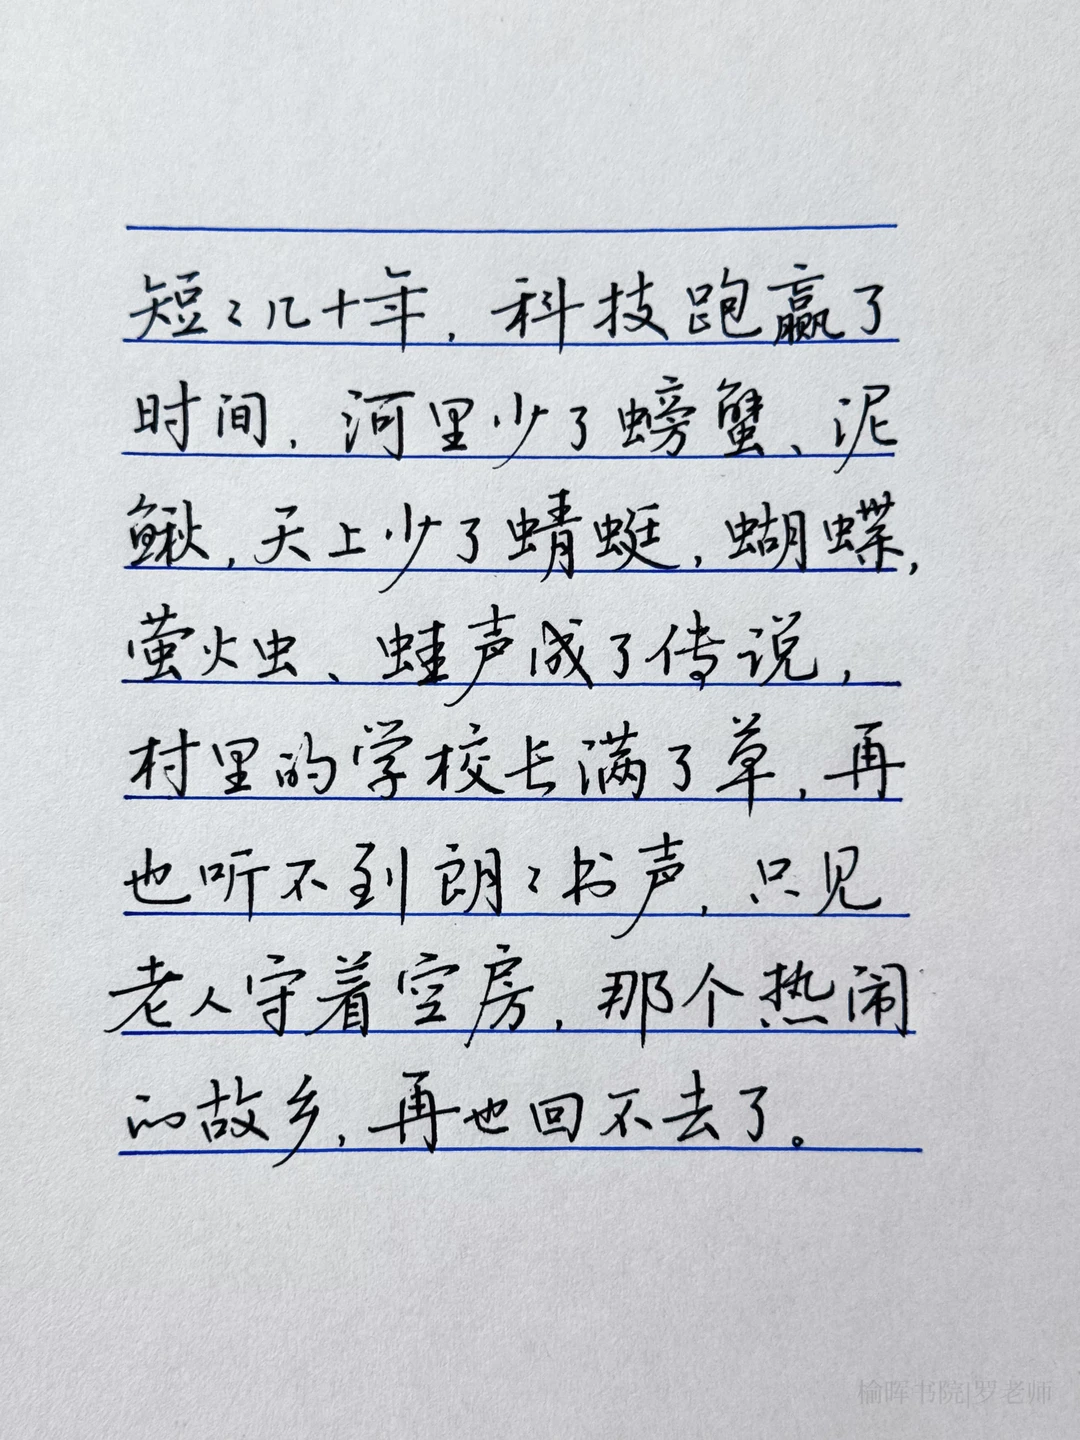 短〻几十年，科技跑赢了
时间，河里少了螃蟹、泥
鳅，天上少了蜻蜓，蝴蝶，
萤火虫、蛙声成了传说，
村里的学校长满了草，再
也听不到朗〻书声，只见
老人守着空房，那个热闹
的故乡，再也回不去了。
榆晖书院|罗老师